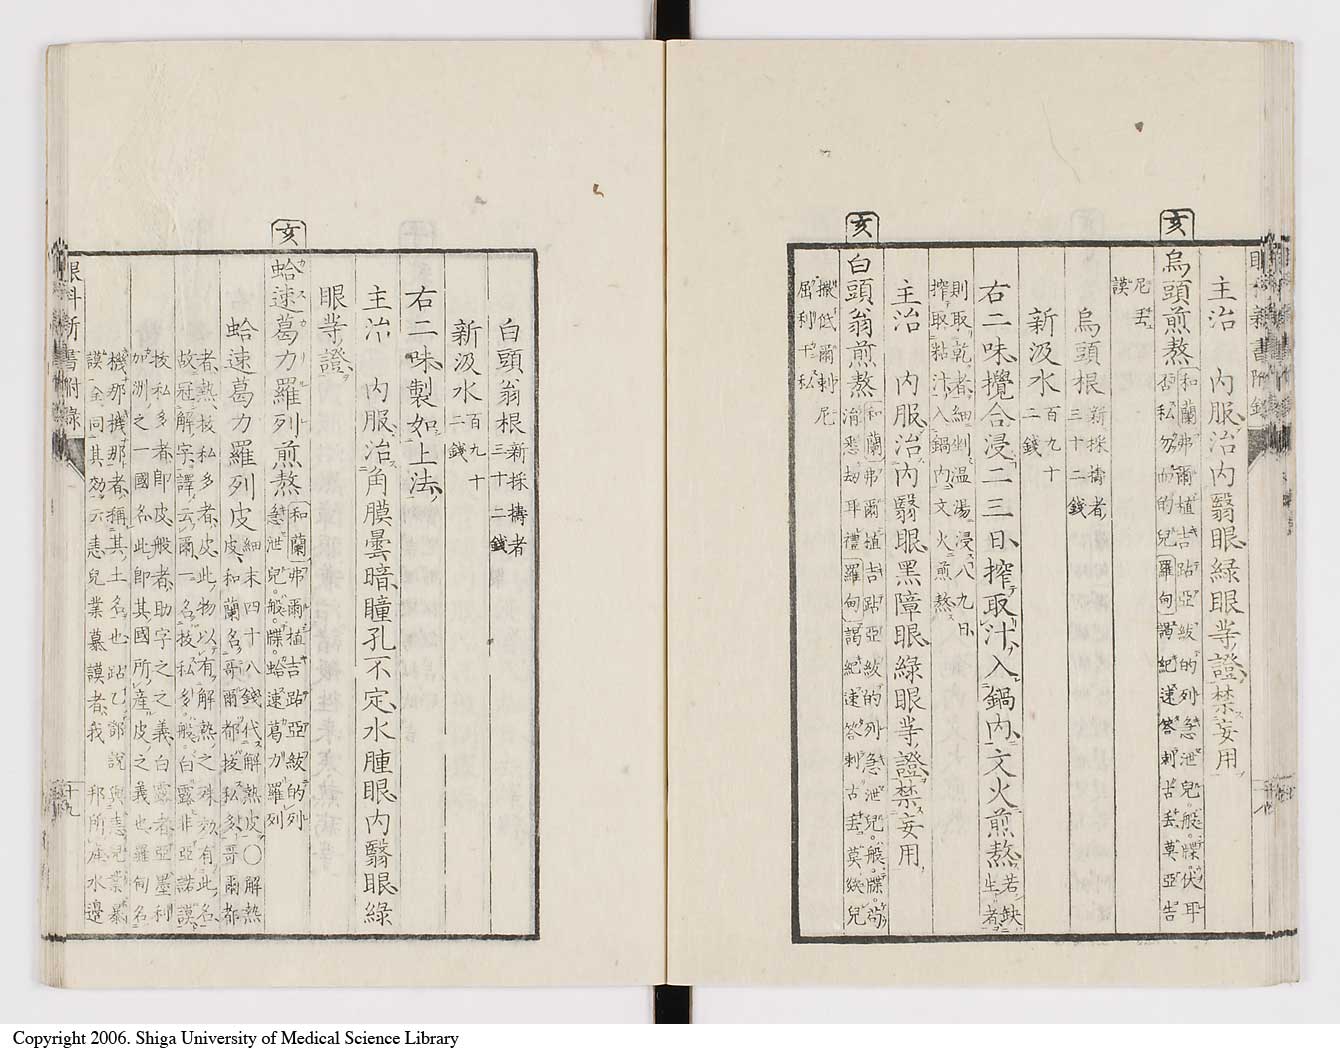 主治 内服治内翳眼緑眼等證禁妄用
亥
烏頭煎熬
和蘭弗爾植吉跕亞紱的列急泄兒般牒伏耳
羅甸謁紀速答刺古丟莫亞吉
尼丟
謨
烏頭根 新採擣者
三十二錢
新汲水 百九十
二錢
右二味攪合浸二三日搾取汁入鍋内文火煎熬 若缺
生者
則取乾者細剉温湯浸八九日
搾取粘汁入鍋内文火煎熬
主治 内服治内翳眼黑障眼緑眼等證禁妄用
亥
白頭翁煎熬
和蘭弗爾植吉跕亞紱的列急泄兒般牒
消悪劫耳禮羅甸謁紀速答刺古丟莫
撒低爾刺尼
屈利千私
白頭翁根 新採擣者
三十二錢
新汲水 百九十
二錢
右二味製如上法
主治 内服治角膜曇暗瞳孔不定水腫眼内翳眼緑
眼等證
亥
蛤速葛力羅列煎熬
和蘭弗爾植吉跕亞紱的列
急泄兒般牒蛤速葛力羅列
蛤速葛力羅列皮 細末四十八錢代解熱皮〇解熱
皮和蘭名哥爾都抜私多哥爾都
者熱抜私多者皮此物以有解熱之殊効有此名
故冠解字譯云爾一名抜私多般白露非亞諾謨
抜私多者即皮般者助字之之義白露者亞墨利
加洲之一國名此即其國所産皮之義也羅甸名
機那機那者稱其土名也跕乙鄒説與恚兒業慕
謨全同其効云恚兒業慕謨者我 邦所産水邊
眼科新書附録
十九